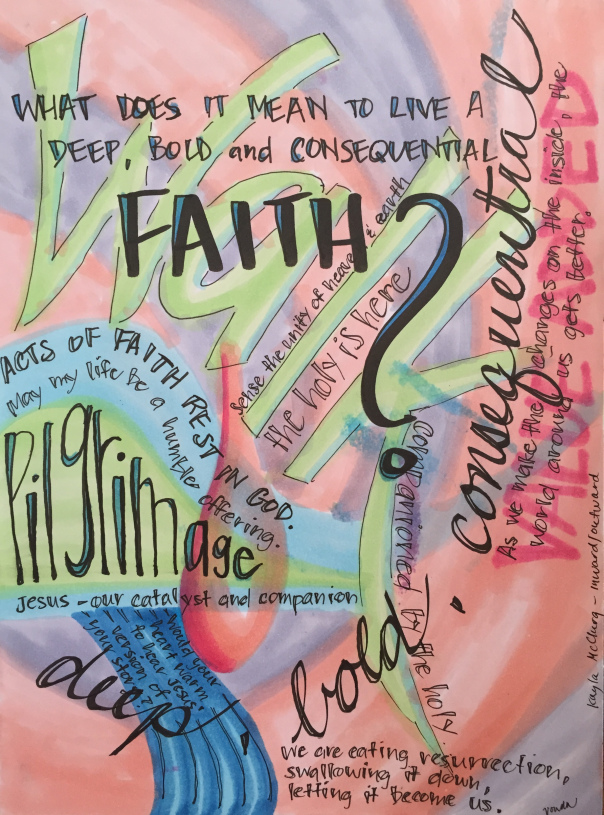 WHAT DOES IT MEAN TO LIVE A
DEEP, BOLD and CONSEQUENTIAL
FAITH?
Walk
Sense the unity of heaven & earth
the holy is here
consequential
VALUE ADDED
As we make the changes on the inside, the
world around us gets better.
ACTS OF FAITH REST IN GOD.
May my life be a humble offering.
Pilgrimage
Jesus - our catalyst and companion
companioned by the holy
would your
heart warm
to hear Jesus'
version of
your story?
deep,
bold.
we are eating resurrection,
swallowing it down,
letting it become us.
Kayla McClurg - inward/outward